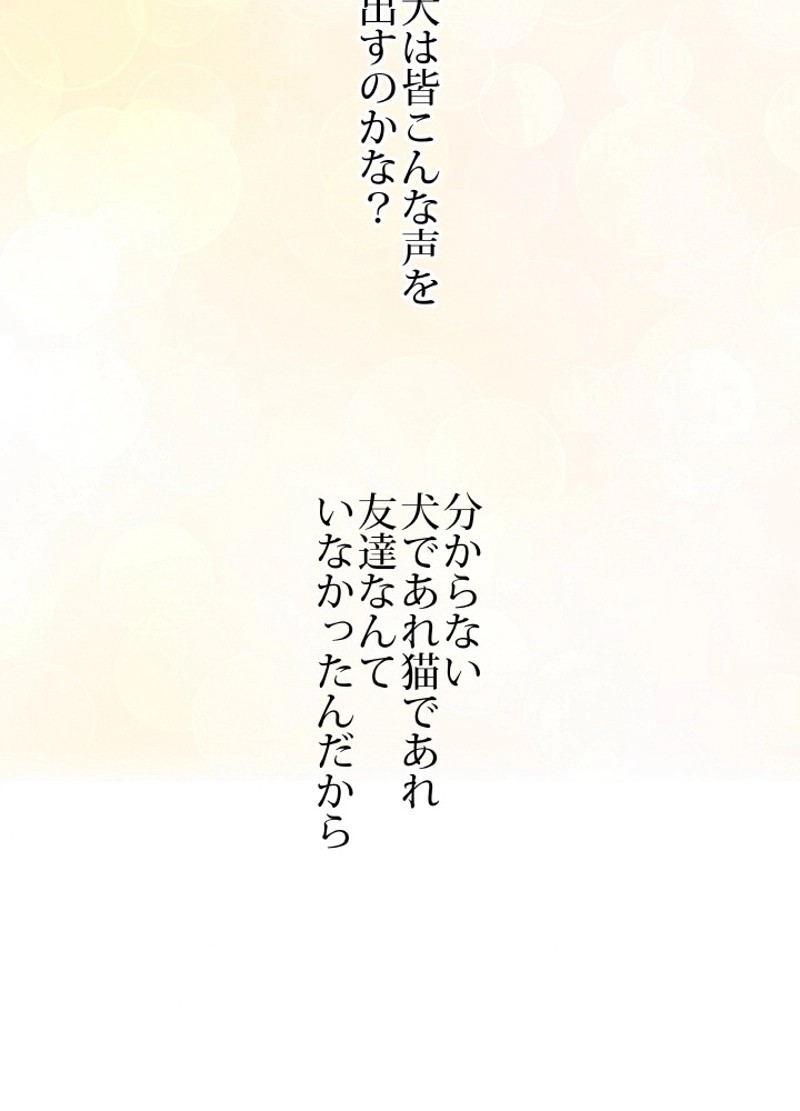 犬は皆こんな声を
出すのかな？
分からない
犬であれ猫であれ
友達なんて
いなかったんだから